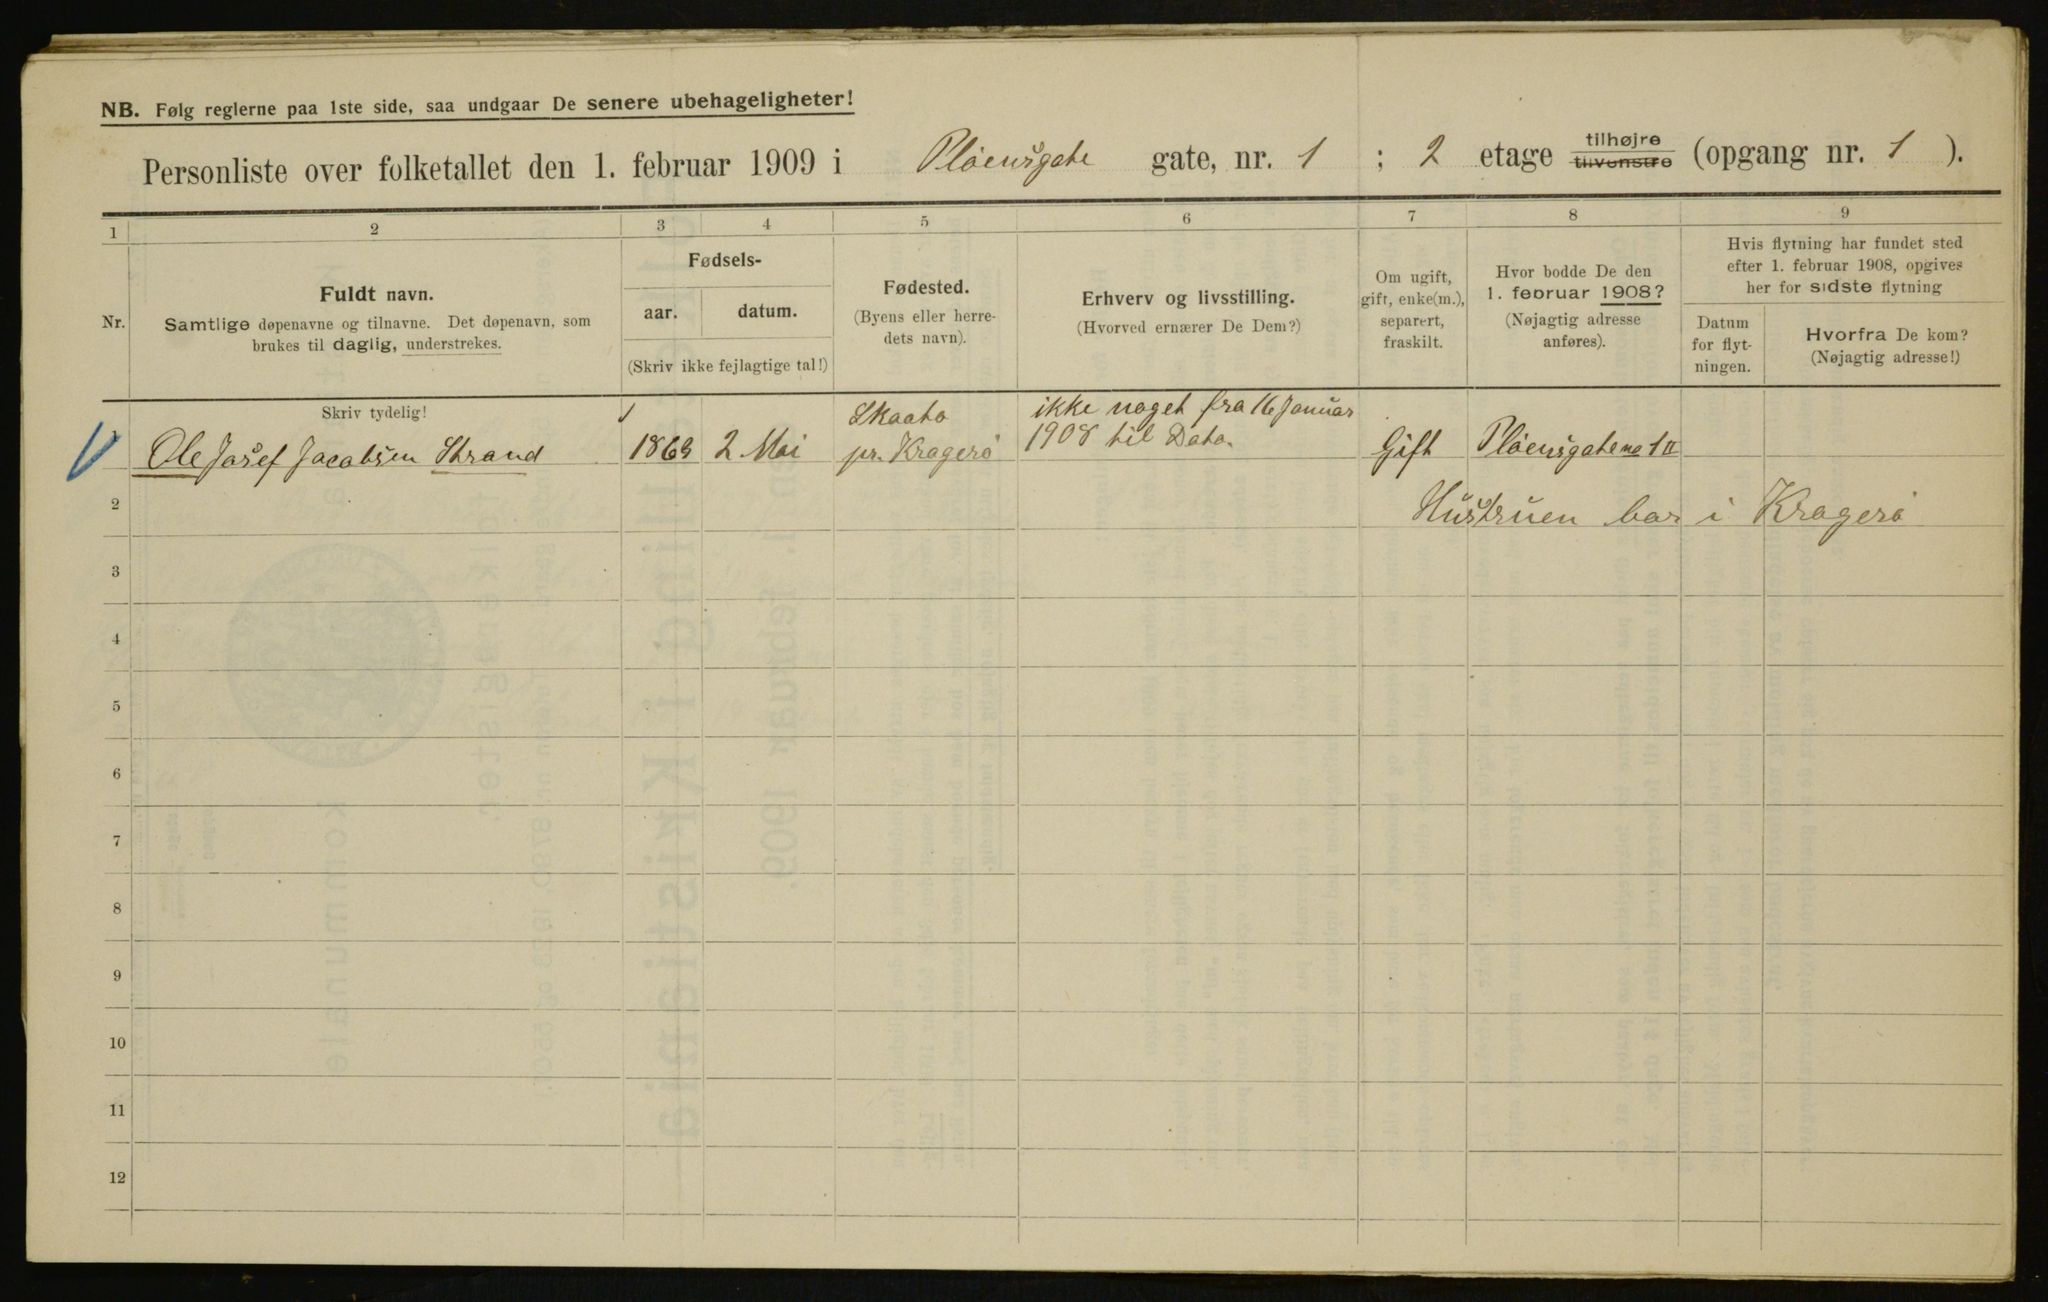 NB. Følg reglerne paa 1ste side, saa undgaar De senere ubehageligheter!
Personliste over folketallet den 1. februar 1909 i Pløensgate gate, nr. 1 ; 2 etage tilhøjre tilvenstre (opgang nr. 1 ).
1 2 3 4 5 6 7 8 9
Nr.
Fuldt navn.
Samtlige døpenavne og tilnavne. Det døpenavn, som
brukes til daglig, understrekes.
Fødsels-
aar. datum.
(Skriv ikke fejlagtige tal!)
Fødested.
(Byens eller herre-
dets navn).
Erhverv og livsstilling.
(Hvorved ernærer De Dem?)
Om ugift,
gift, enke(m.),
separert,
fraskilt.
Hvor bodde De den
1. februar 1908?
(Nøjagtig adresse
anføres).
Hvis flytning har fundet sted
efter 1. februar 1908, opgives
her for sidste flytning
Datum
for flyt-
ningen.
Hvorfra De kom?
(Nøjagtig adresse!)
Skriv tydelig!
Skaatø ikke noget fra 16 Januar
Ole Josef Jacobsen Strand 1869 2 Mai pr. Kragerø 1908 til Dato. Gift Pløensgate no 1 II
2 Hustruen bor i Kragerø
3
4
5
6
7
8
9
10
11
12